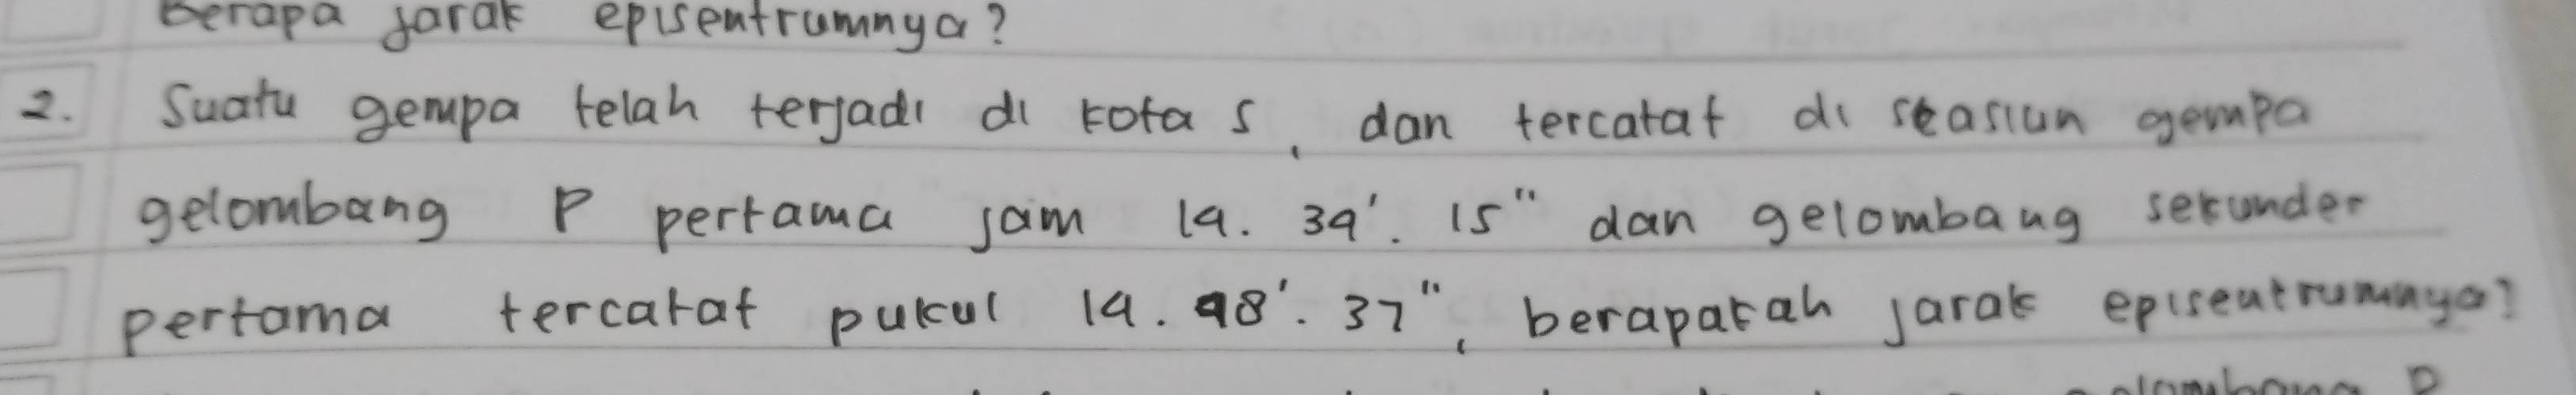 Berapa jarak episentrumnya?
2. Suatu gempa telah terjadi di kota S, dan tercatat di stasiun gempa
gelombang P pertama jam 14. 34'. 15" dan gelombang sekunder
pertama tercatat pukul 14. 48'. 37", berapakah jarak episentrumnya?
gelombang P